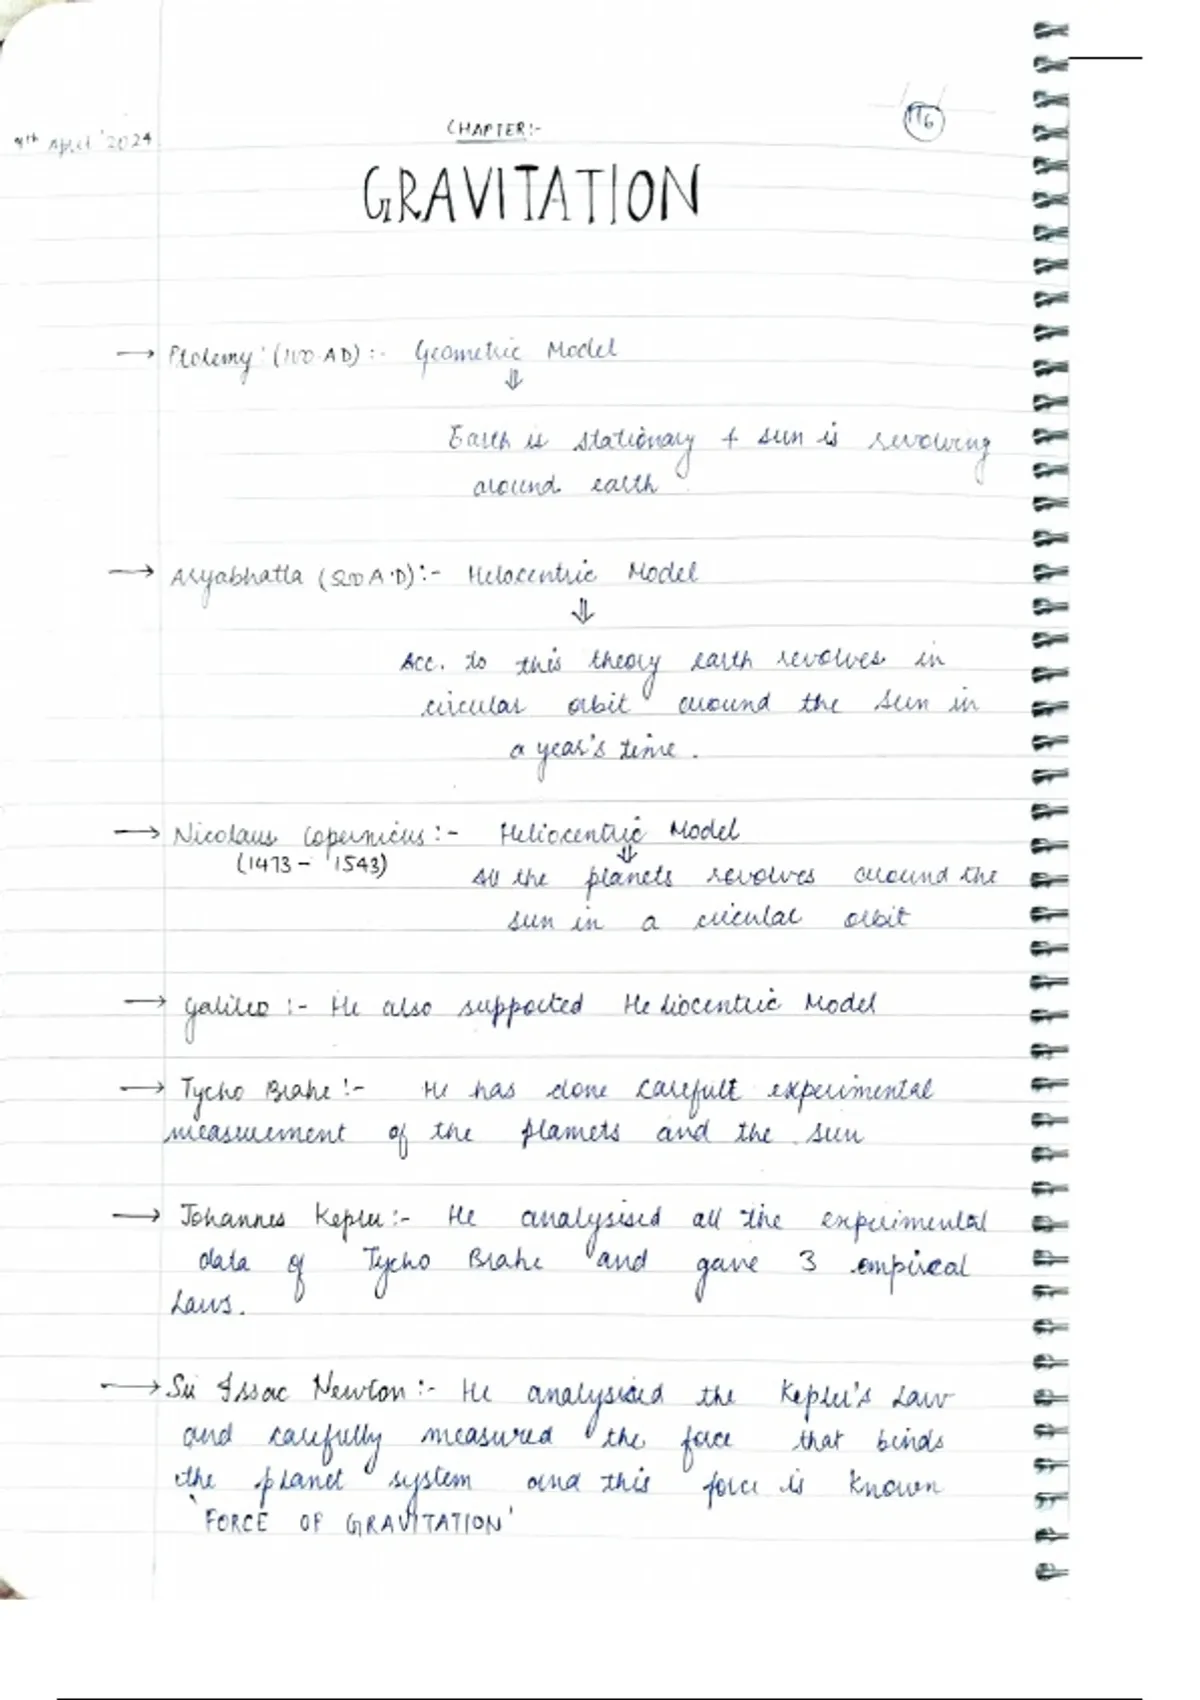 9th April '2024
CHAPTER:-
116
GRAVITATION
→ Ptolemy (100 AD) :- Geometric Model
⇓
Earth is stationary + sun is revolving
around earth
→ Aryabhatta (500 A.D):- Helocentric Model
⇓
Acc. to this theory earth revolves in
circular orbit around the sun in
a year's time.
→ Nicolaus Copernicus :- Heliocentric Model
(1473 - 1543) ⇓
All the planets revolves around the
sun in a circular orbit
→ Galileo :- He also supported Heliocentric Model
→ Tycho Brahe :- He has done carefult experimental
measurement of the planets and the sun
→ Johannes Kepler:- He analysised all the experimental
data of Tycho Brahe and gave 3 empirical
Laws.
→ Sir Issac Newton :- He analysised the Kepler's Law
and carefully measured the force that binds
the planet system and this force is known
'FORCE OF GRAVITATION'